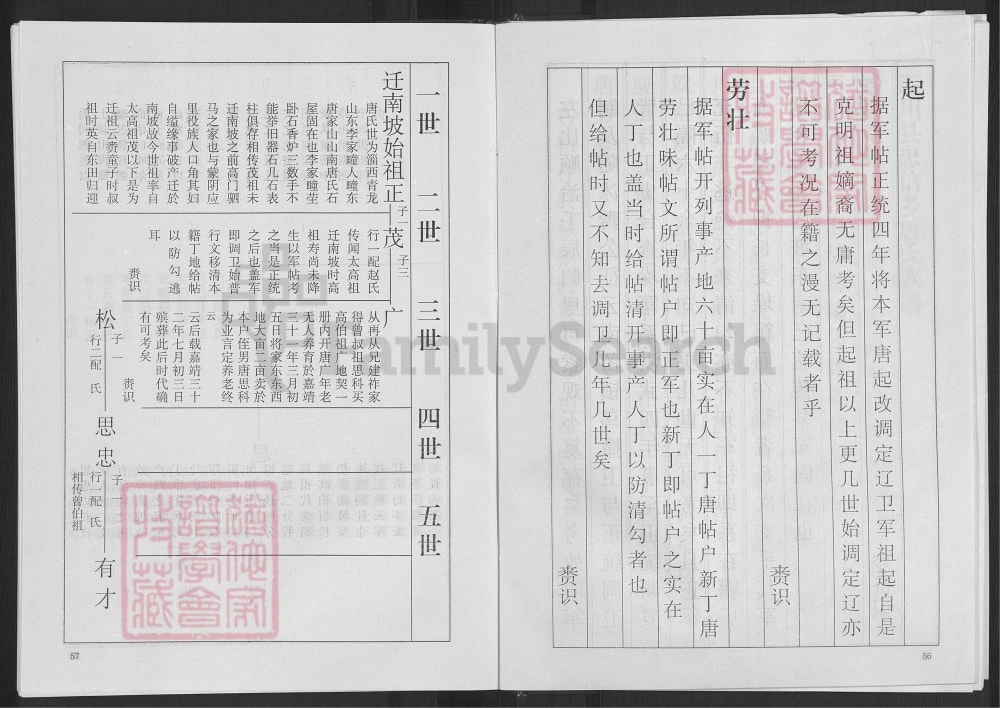 起
据军帖正统四年将本军唐起改调定辽卫军祖起自是
克明祖嫡裔无庸考矣但起祖以上更几世始调定辽亦
不可考况在籍之漫无记载者乎
赉识
劳壮
据军帖开列事产地六十亩实在人一丁唐帖户新丁唐
劳壮味帖文所谓帖户即正军也新丁即帖户之实在
人丁也盖当时给帖清开事产人丁以防清勾者也
但给帖时又不知去调卫几年几世矣
赉识
56
一世 二世 三世 四世 五世
迁南坡始祖正
子一
茂
子三
广
唐氏世为淄西青龙
山东李家疃人疃东
唐家山山南唐氏石
屋固在也李家疃茔
卧石香炉三数手不
能举旧器石几石表
柱俱存相传茂祖未
迁南坡之前高门驷
马之家也与蒙阴应
里役族人口角其妇
自缢缘事破产迁於
南坡故今世祖率自
太高祖茂以下是为
迁祖云赉童子时叔
祖时英自东田归迎
行一配赵氏
传闻太高祖
迁南坡时高
祖寿尚未降
生以军帖考
之当是正统
之后也盖军
即调卫始普
行文移清本
籍丁地给帖
以防勾逃
耳
赉识
从再从兄建祚家
得曾叔祖思科买
高伯祖广地契一
册内开唐广年老
无人养育於嘉靖
三十一年三月初
五日将家东东西
地大亩二亩卖於
本户侄男唐思科
为业言定养老终
云
云后载嘉靖三十
二年七月初三日
殡葬此后时代确
有可考矣
赉识
松
子一
行二配 氏
思忠
子一
行一配 氏
相传曾伯祖
有才
57
FamilySearch